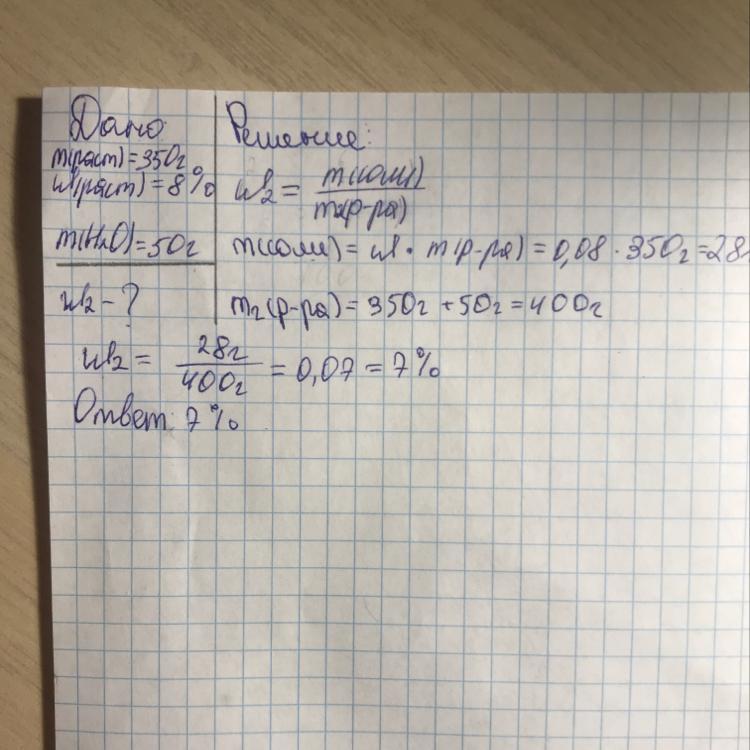 Дано
m(раст)=350г
w(раст)=8%
m(H₂O)=50г
w₂-?
Решение:
w₂ = m(соли) / m₂(р-ра)
m(соли) = w · m(р-ра) = 0,08 · 350г = 28г
m₂(р-ра) = 350г + 50г = 400г
w₂ = 28г / 400г = 0,07 = 7%
Ответ: 7%